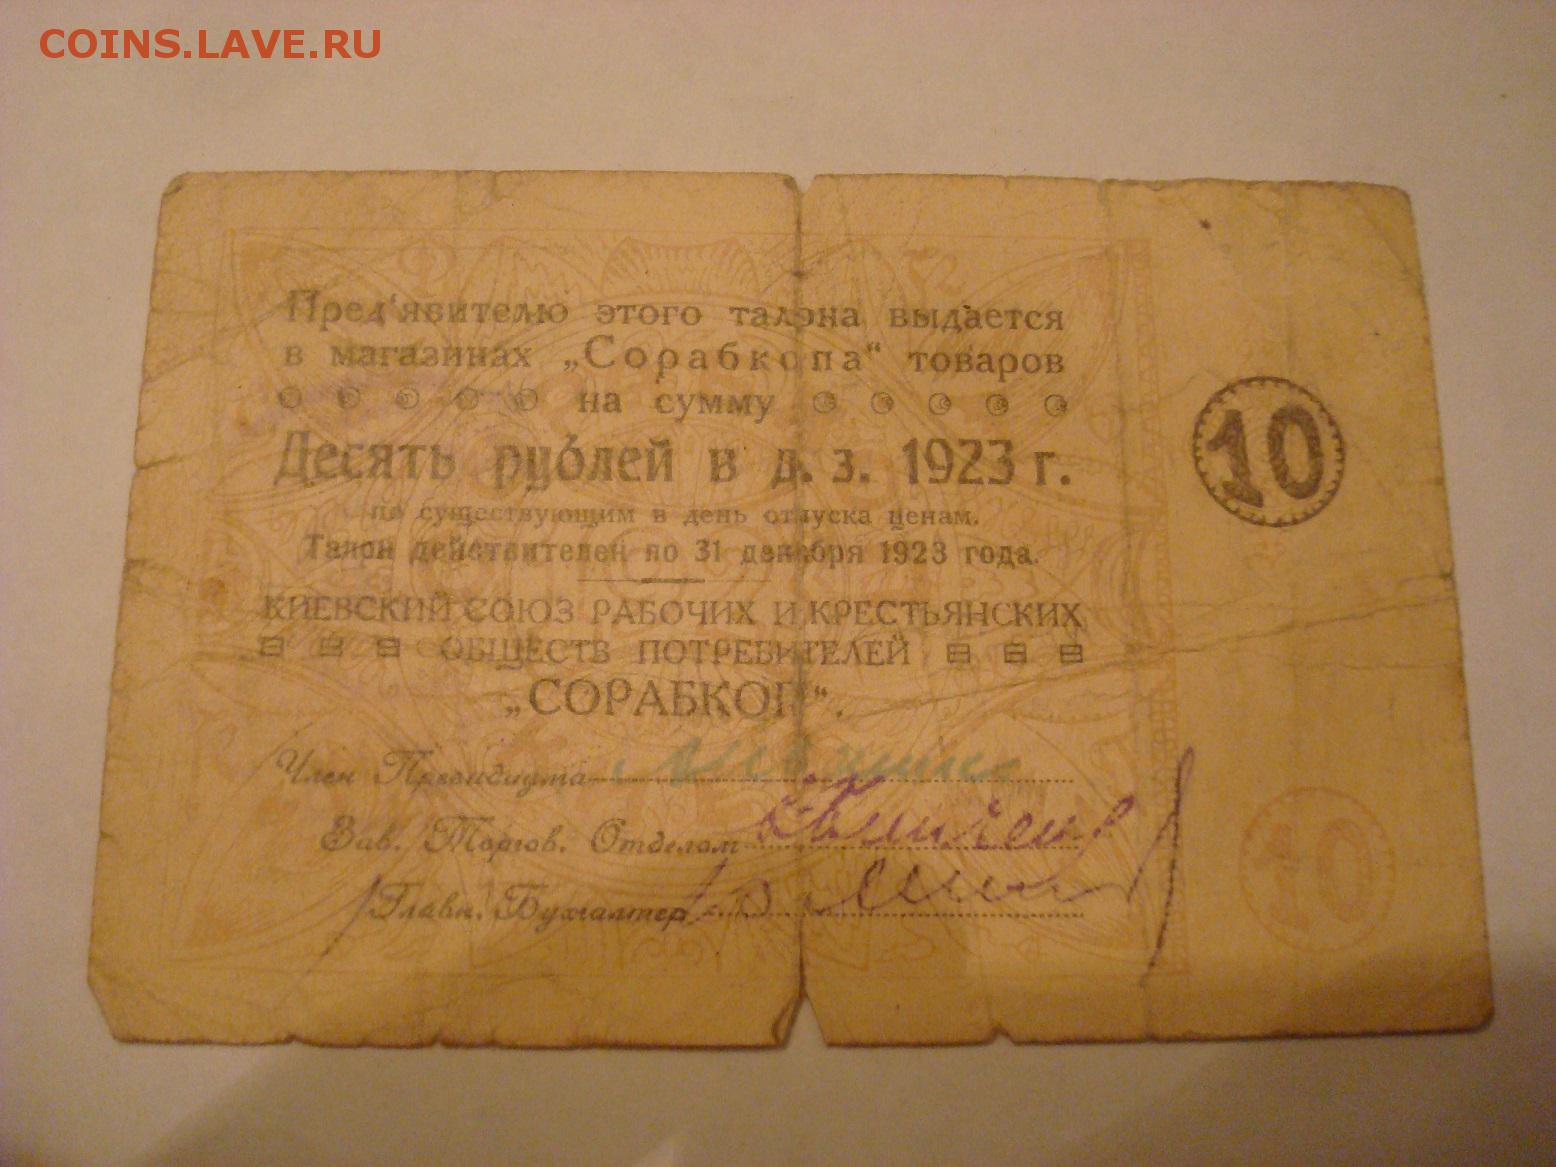 COINS.LAVE.RU
Пред'явителю этого талона выдается
в магазинах „Сорабкопа“ товаров
на сумму
Десять рублей в д. з. 1923 г.
по существующим в день отпуска ценам.
Талон действителен по 31 декабря 1923 года.
КИЕВСКИЙ СОЮЗ РАБОЧИХ И КРЕСТЬЯНСКИХ
ОБЩЕСТВ ПОТРЕБИТЕЛЕЙ
„СОРАБКОП“.
Член Президиума
Зав. Торгов. Отделом
Главн. Бухгалтер
10
10